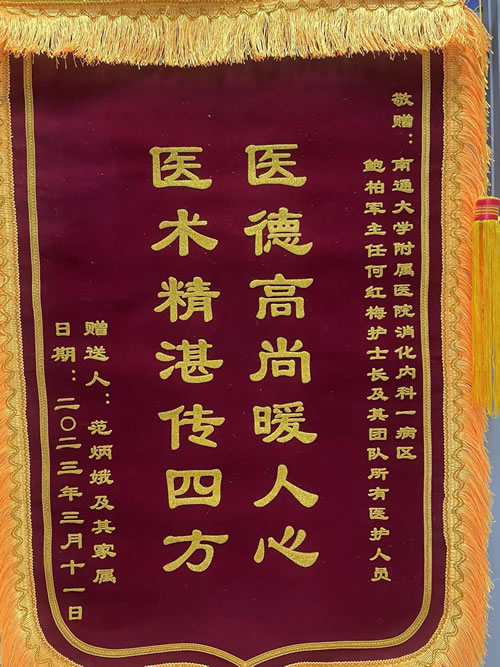 敬赠：南通大学附属医院消化内科一病区
鲍柏军主任何红梅护士长及其团队所有医护人员
医德高尚暖人心
医术精湛传四方
赠送人：范炳娥及其家属
日期：二〇二三年三月十一日